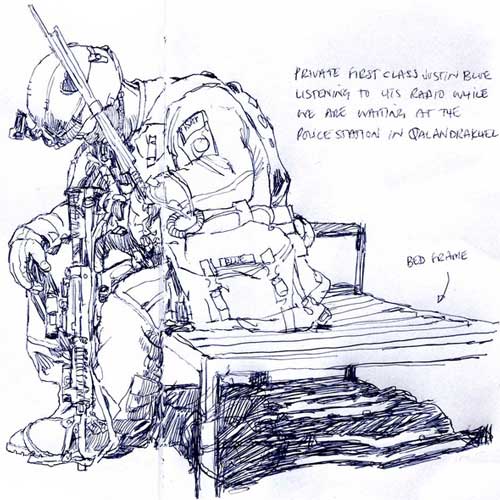 PRIVATE FIRST CLASS JUSTIN BLUE
LISTENING TO HIS RADIO WHILE
WE ARE WAITING AT THE
POLICE STATION IN QALANDRAKHEL
BLUE
BED FRAME